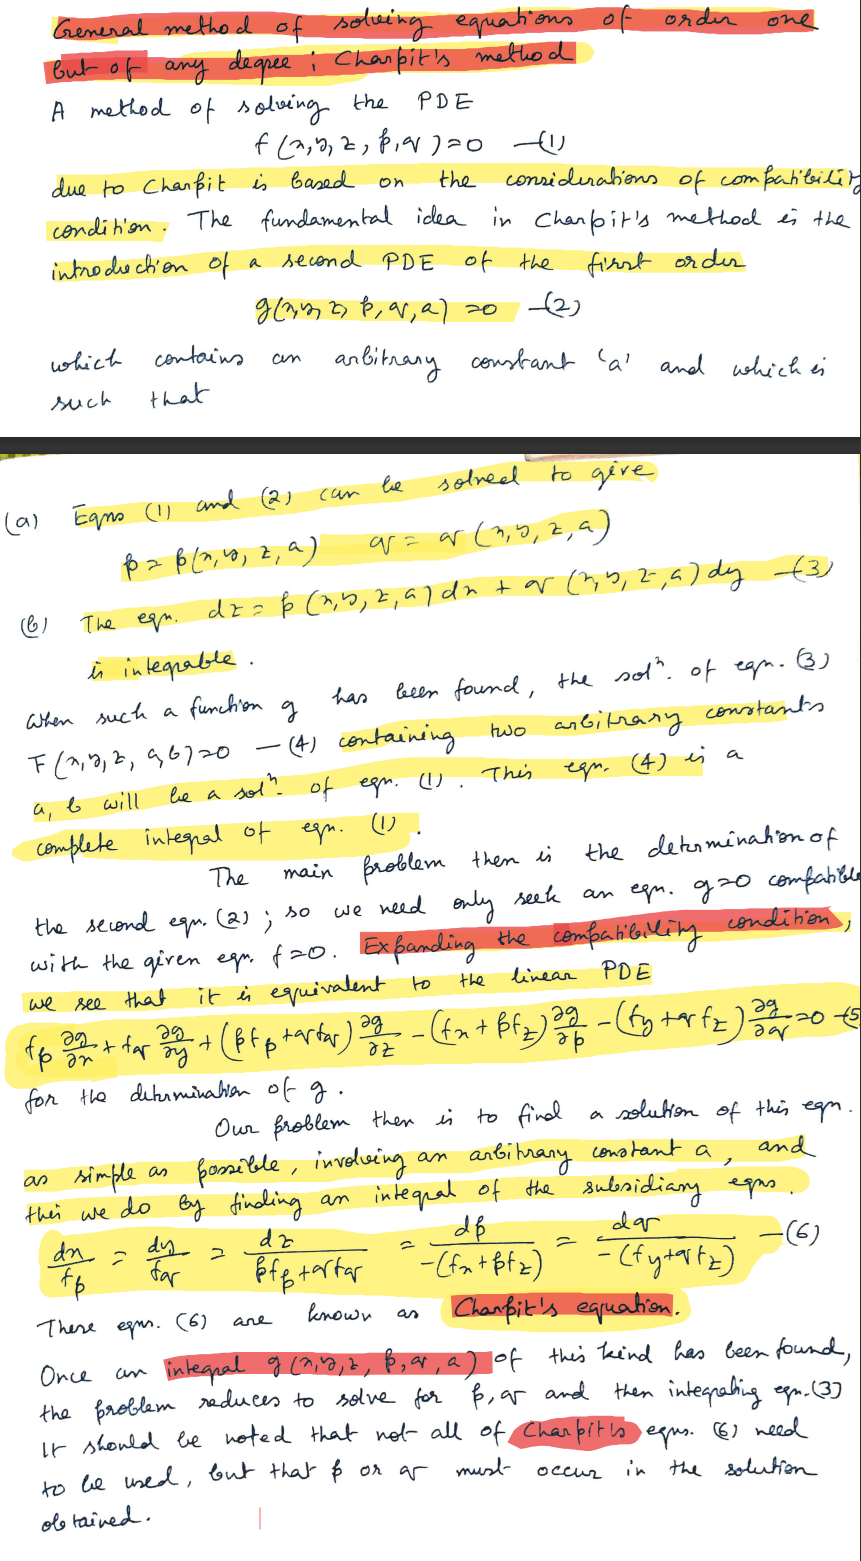 General method of solving equations of order one
but of any degree ; Charpit's method
A method of solving the PDE
f(x,y,z,p,q)=0 —(1)
due to Charpit is based on the considerations of compatibility
condition. The fundamental idea in Charpit's method is the
introduction of a second PDE of the first order
g(x,y,z,p,q,a)=0 —(2)
which contains an arbitrary constant 'a' and which is
such that
(a) Eqns (1) and (2) can be solved to give
p = p(x,y,z,a) q = q(x,y,z,a)
(b) The eqn. dz = p(x,y,z,a)dx + q(x,y,z,a)dy —(3)
is integrable.
When such a function g has been found, the solⁿ. of eqn. (3)
F(x,y,z,a,b)=0 —(4) containing two arbitrary constants
a, b will be a solⁿ. of eqn. (1). This eqn. (4) is a
complete integral of eqn. (1).
The main problem then is the determination of
the second eqn. (2) ; so we need only seek an eqn. g=0 compatible
with the given eqn f=0. Expanding the compatibility condition,
we see that it is equivalent to the linear PDE
f_p ∂g/∂x + f_q ∂g/∂y + (p f_p + q f_q) ∂g/∂z - (f_x + p f_z) ∂g/∂p - (f_y + q f_z) ∂g/∂q = 0 —(5
for the determination of g.
Our problem then is to find a solution of this eqn.
as simple as possible, involving an arbitrary constant a, and
this we do by finding an integral of the subsidiary eqns.
dx/f_p = dy/f_q = dz/(p f_p + q f_q) = dp/-(f_x + p f_z) = dq/-(f_y + q f_z) —(6)
These eqns. (6) are known as Charpit's equation.
Once an integral g(x,y,z,p,q,a) of this kind has been found,
the problem reduces to solve for p,q and then integrating eqn.(3)
It should be noted that not all of Charpit's eqns. (6) need
to be used, but that p or q must occur in the solution
obtained.